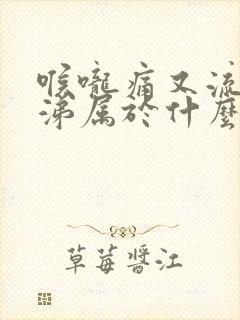 喉嚨痛又流
涕属於什麼
草莓醬江